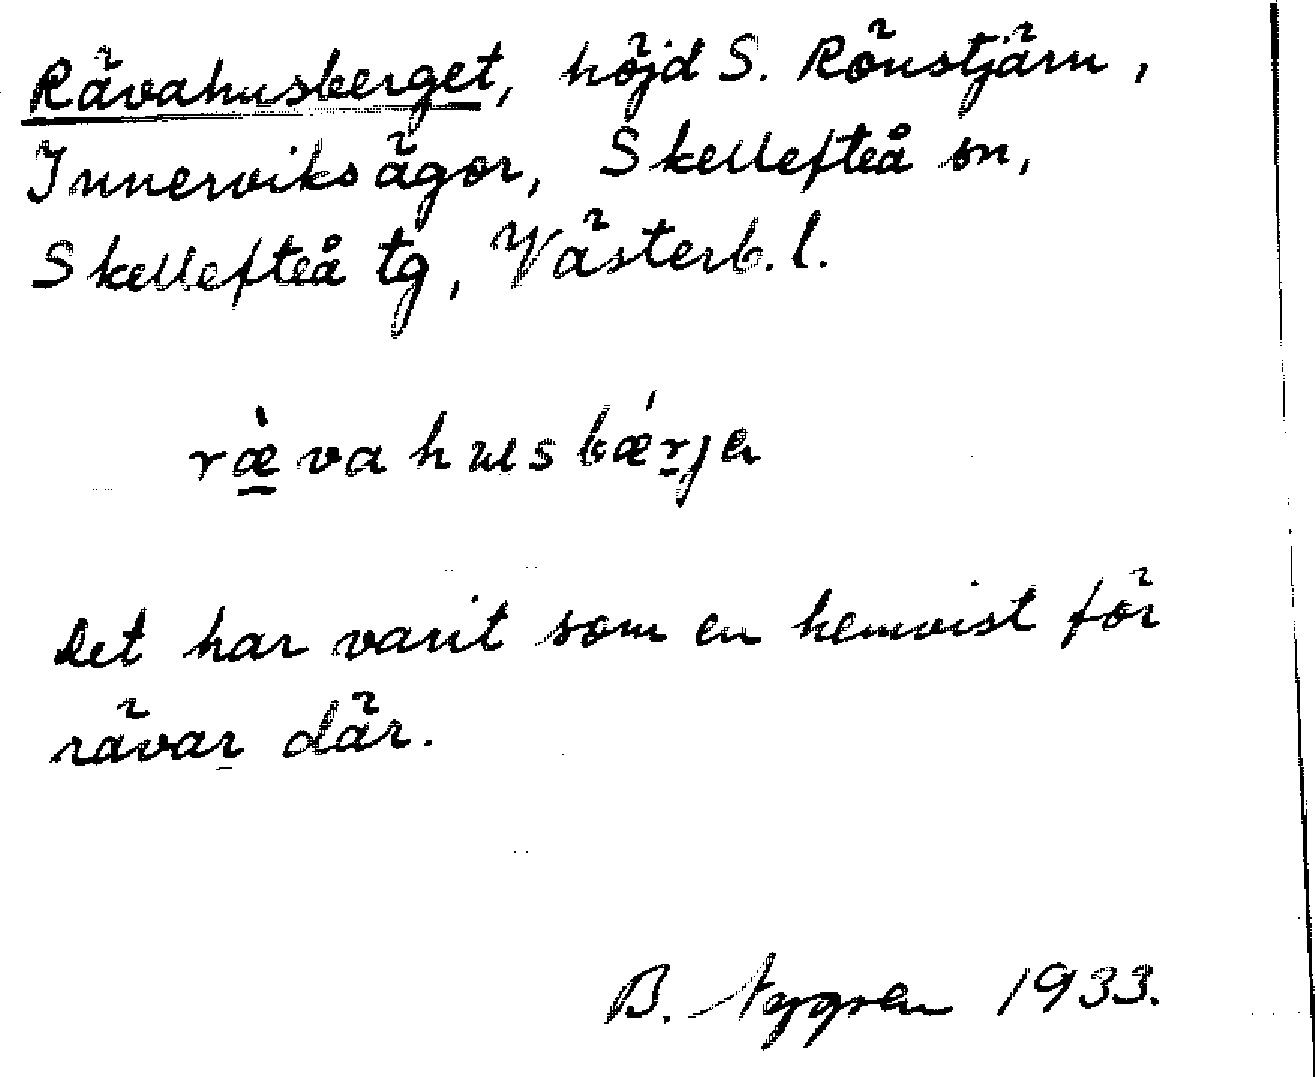 Rävahusberget, höjd S. Rönstjärn,
Innerviks ägor, Skellefteå sn,
Skellefteå tg, Västerb. l.
ræ̀vahusbǽrje
Det har varit som en hemvist för
rävar där.
B. Nygren 1933.